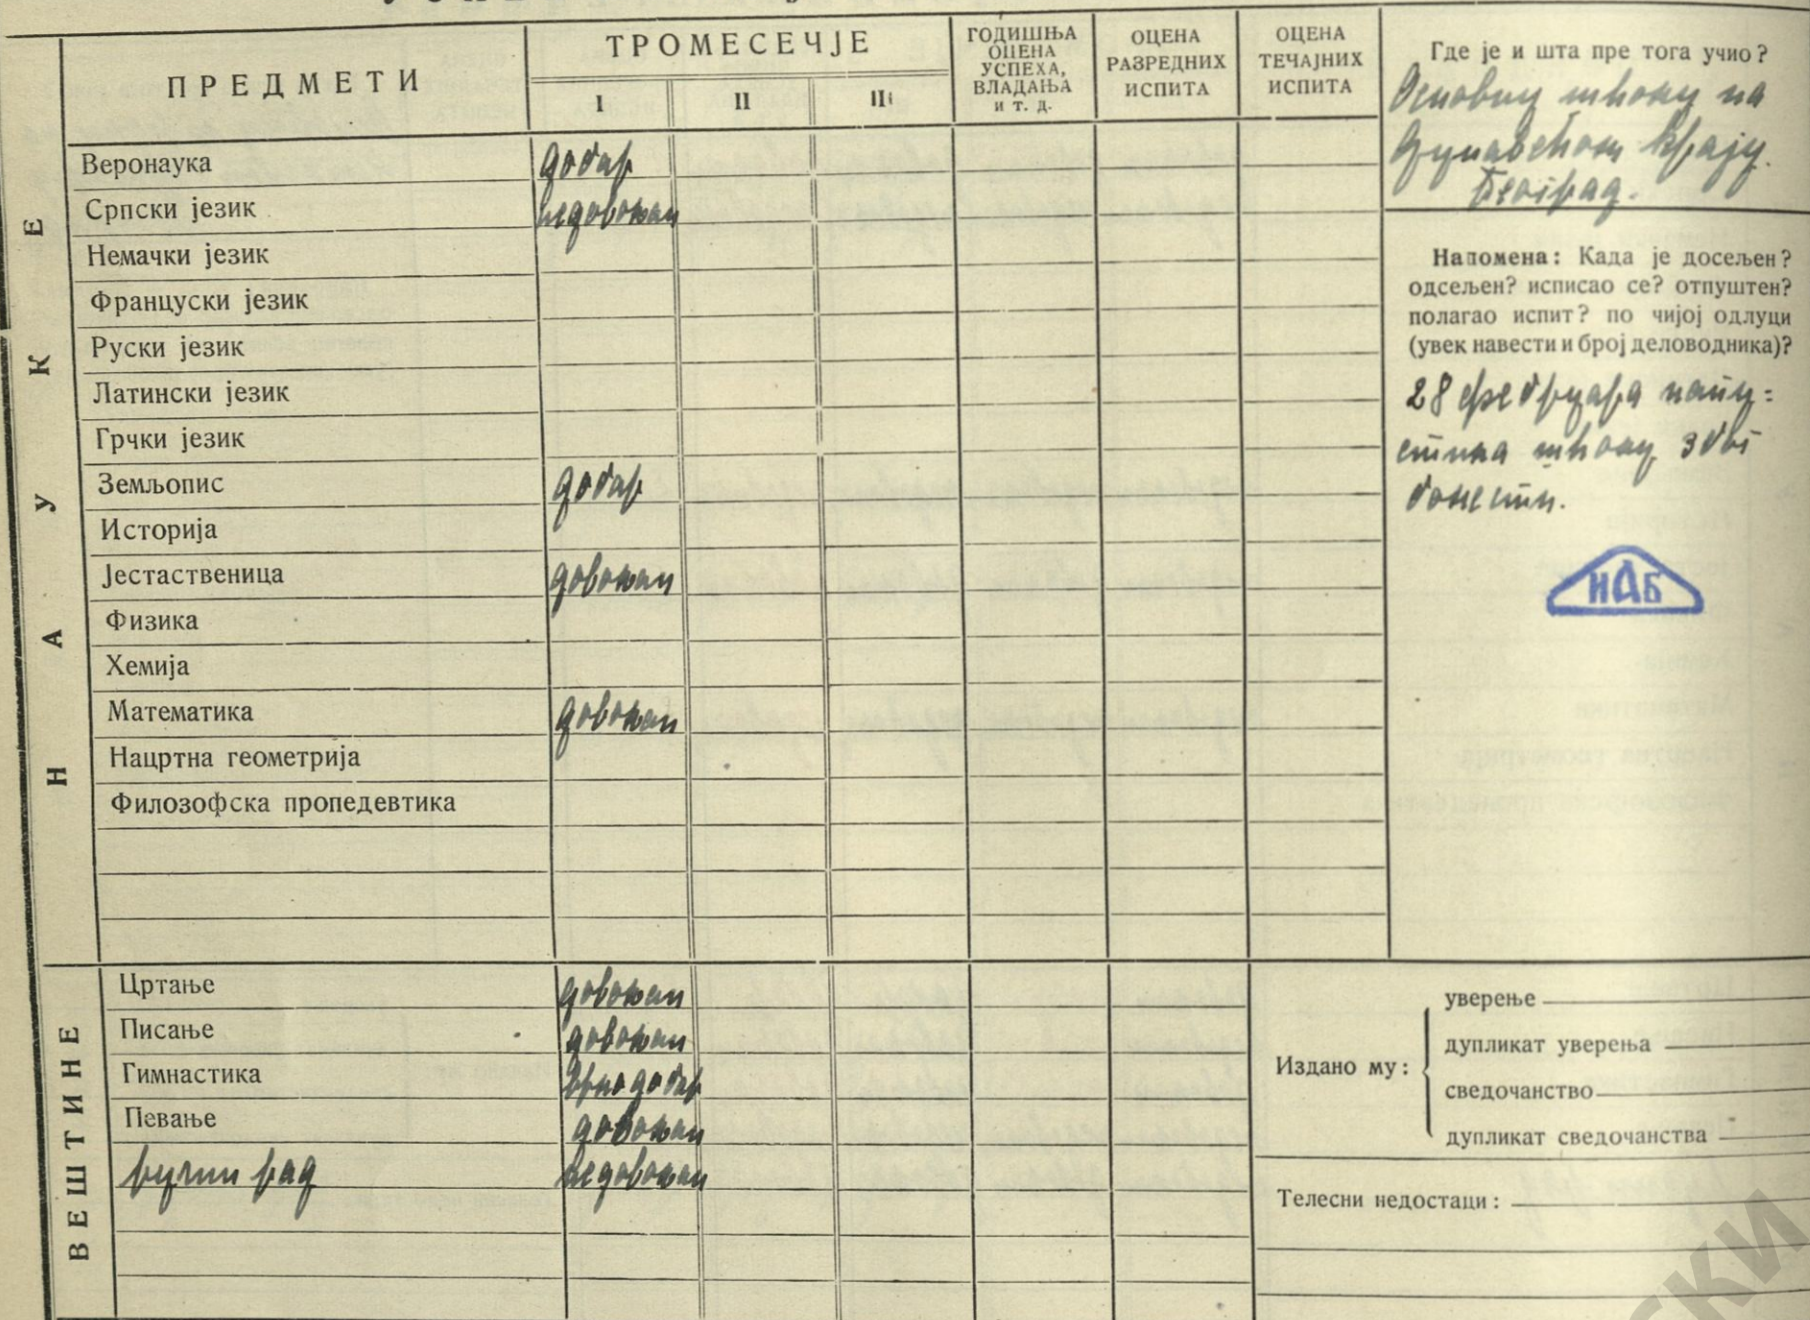 ПРЕДМЕТИ
ТРОМЕСЕЧЈЕ
I II III
ГОДИШЊА
ОЦЕНА
УСПЕХА,
ВЛАДАЊА
и т. д.
ОЦЕНА
РАЗРЕДНИХ
ИСПИТА
ОЦЕНА
ТЕЧАЈНИХ
ИСПИТА
НАУКЕ
Веронаука добар
Српски језик недовољан
Немачки језик
Француски језик
Руски језик
Латински језик
Грчки језик
Земљопис добар
Историја
Јестаственица довољан
Физика
Хемија
Математика довољан
Нацртна геометрија
Филозофска пропедевтика
ВЕШТИНЕ
Цртање довољан
Писање довољан
Гимнастика врло добар
Певање довољан
ручни рад недовољан
Где је и шта пре тога учио?
Основну школу на
Дунавском крају.
Београд.
Напомена: Када је досељен?
одсељен? исписао се? отпуштен?
полагао испит? по чијој одлуци
(увек навести и број деловодника)?
28 фебруара напу-
стила школу због
болести.
ИАБ
Издано му:
уверење
дупликат уверења
сведочанство
дупликат сведочанства
Телесни недостаци:
СКИ